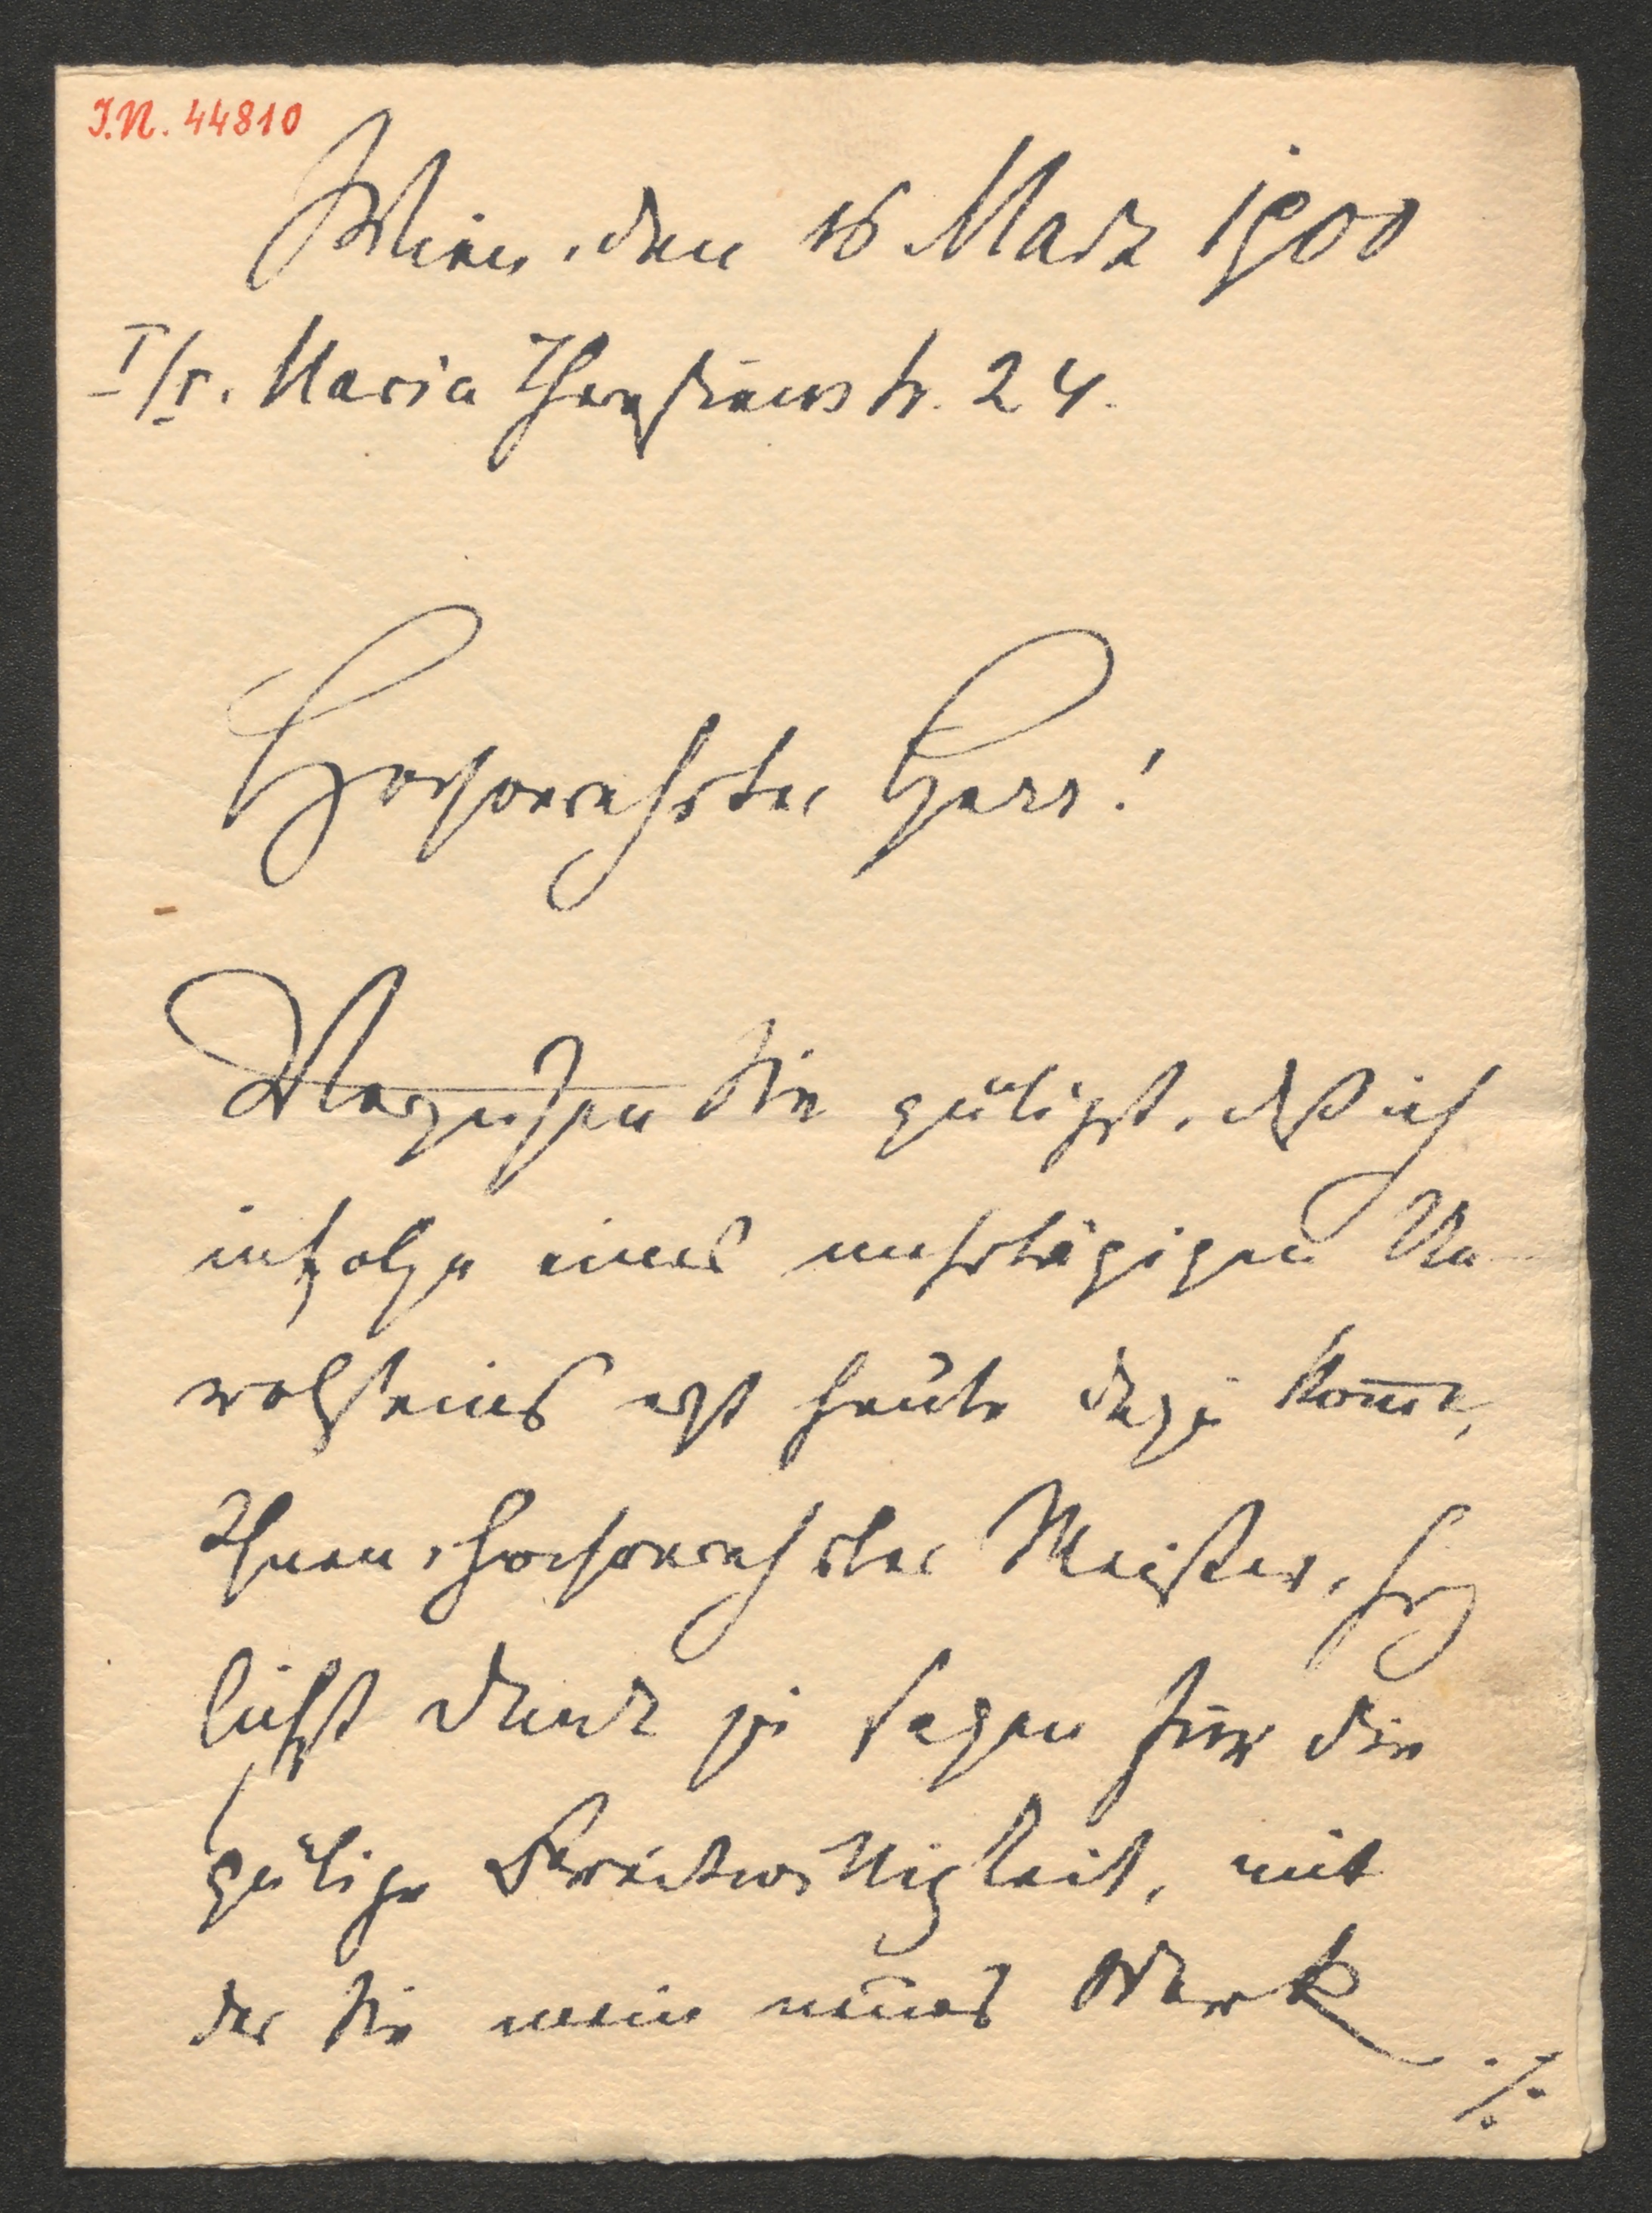 I.N. 44810
Wien, den 16 März 1900
I/1. Maria Theresienstr. 24.
Hochverehrter Herr!
Verzeihen Sie gütigst, daß ich
infolge eines mehrtägigen Un-
wohlseins erst heute dazu komme,
Ihnen, hochverehrter Meister, herz
lichst Dank zu sagen für die
gütige Bereitwilligkeit, mit
der Sie mein neues Werk
./.